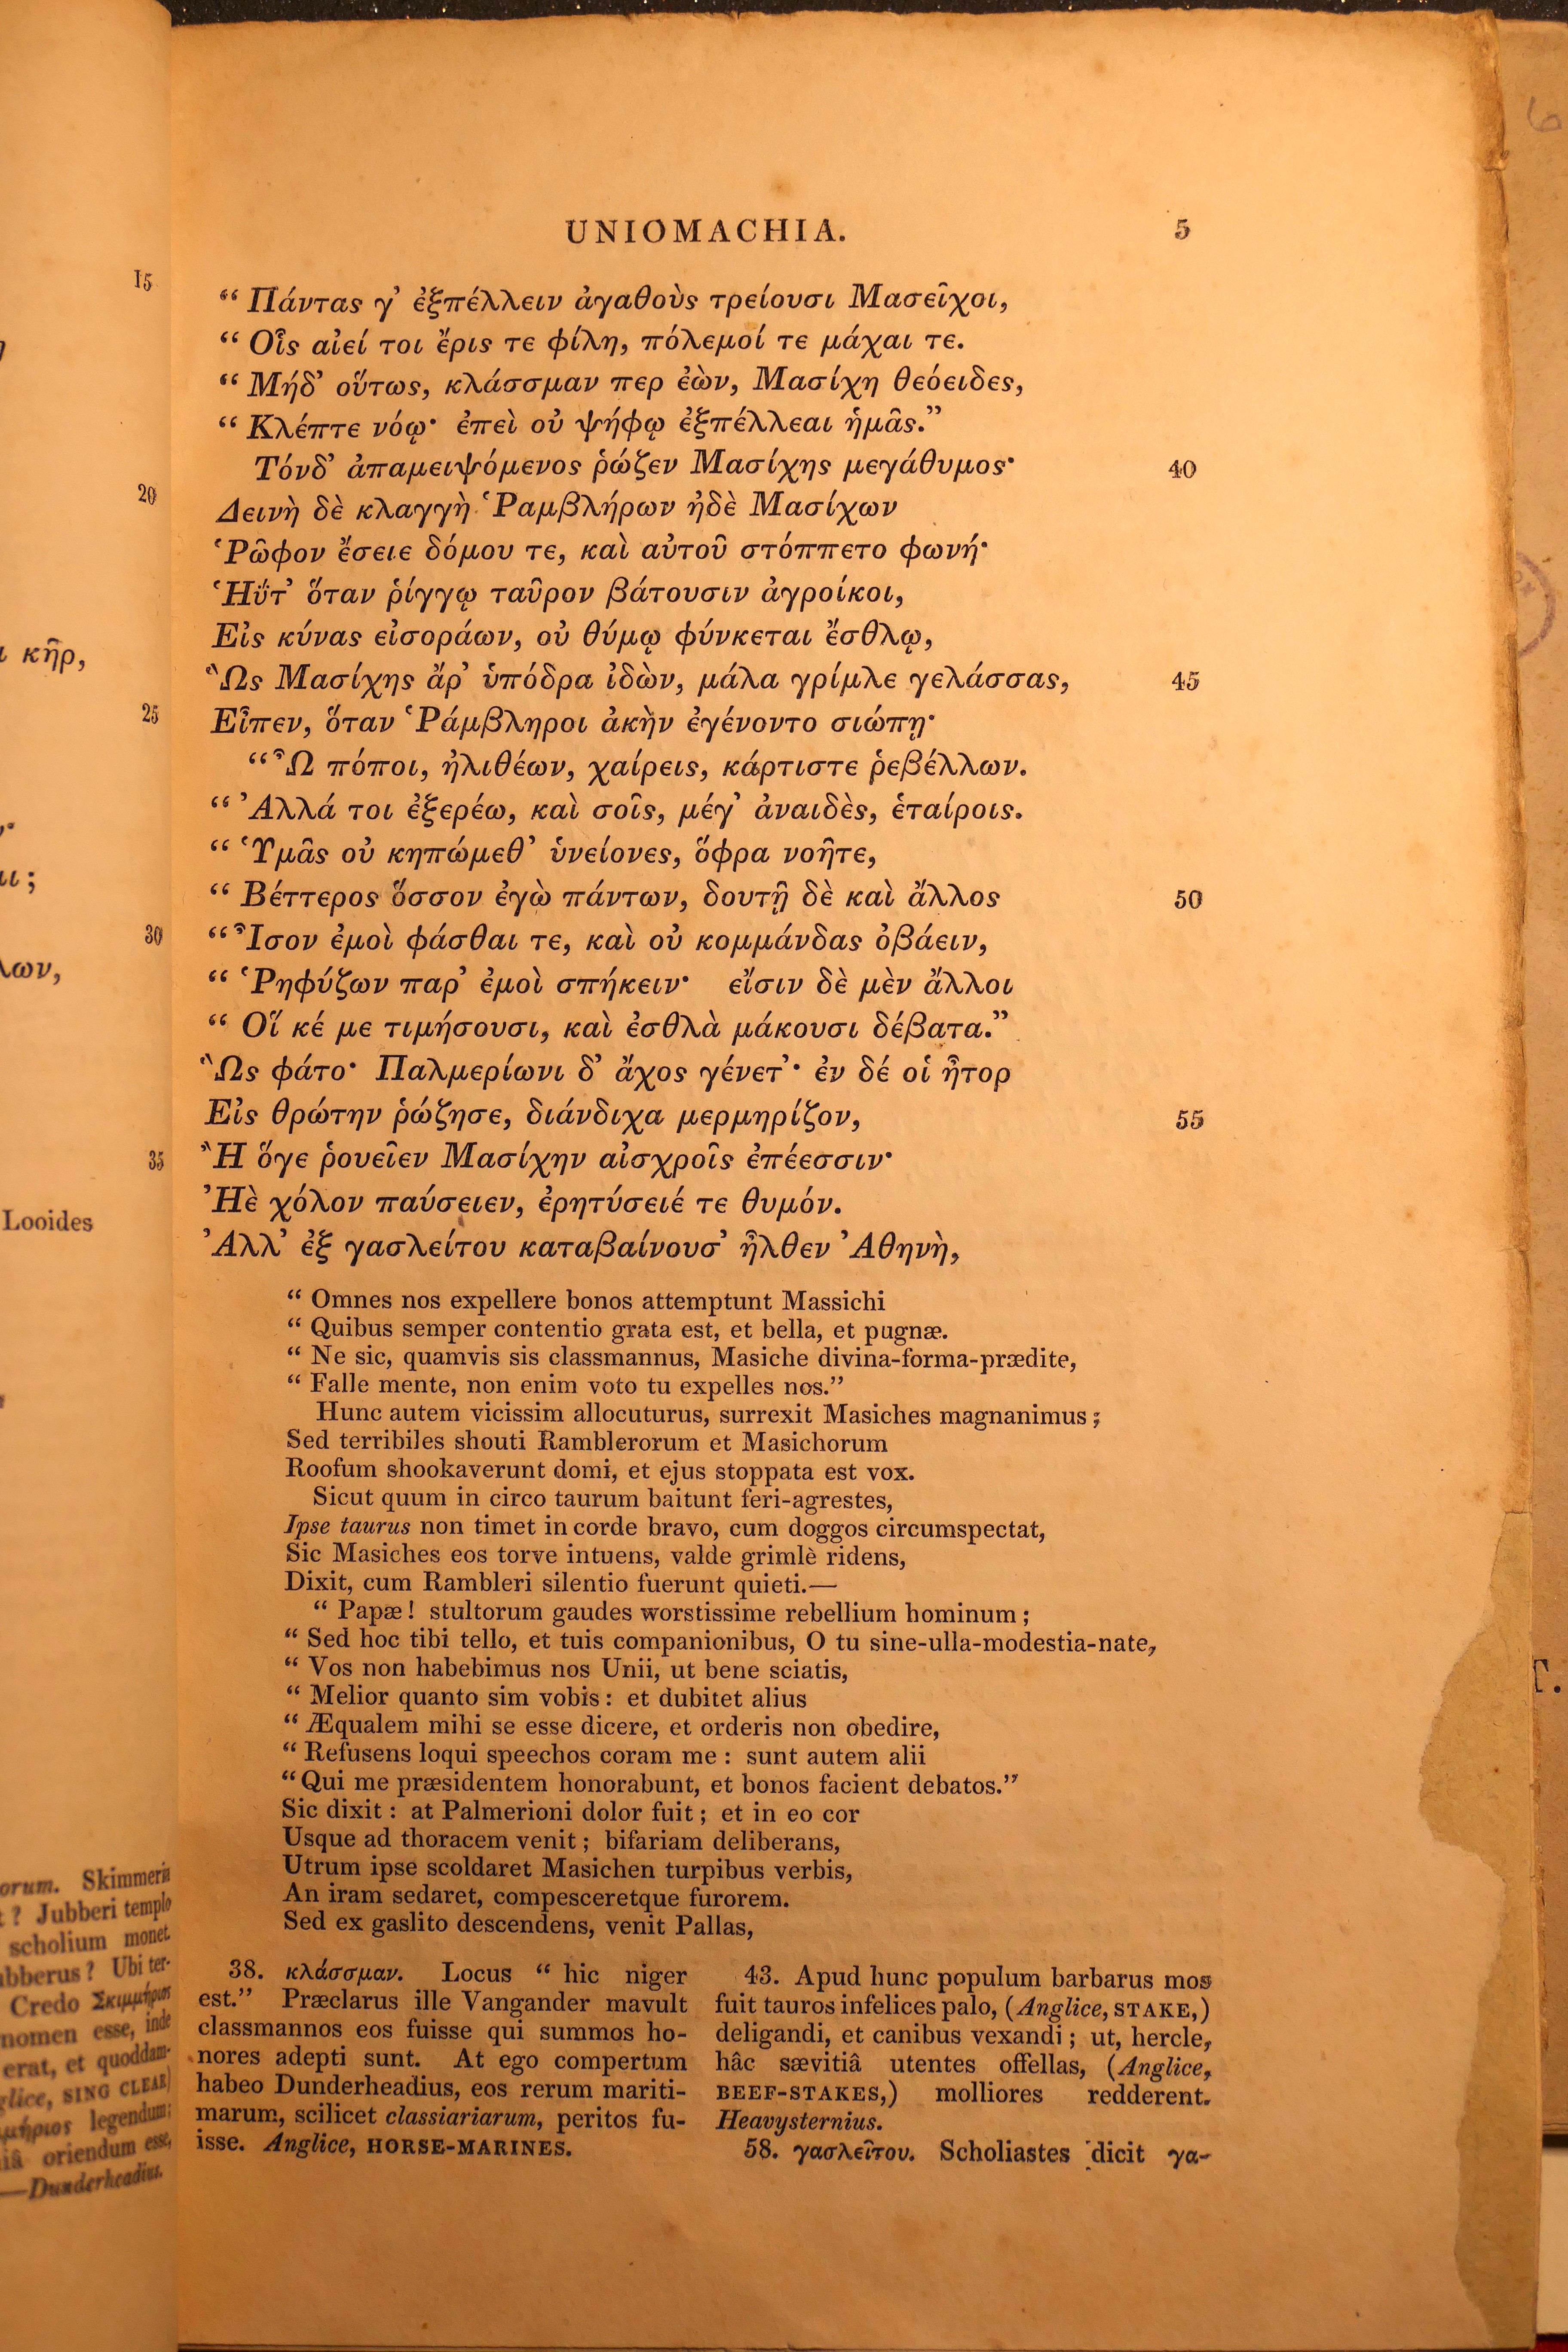 15
20
ι κῆρ,
25
ιι ;
30
λων,
35
Looides
orum. Skimmeria
t ? Jubberi templo
scholium monet.
ubberus ? Ubi ter-
Credo Σκιμμήριος
nomen esse, inde
erat, et quoddam-
glice, SING CLEAR)
μμήριος legendum;
iâ oriendum esse,
—Dunderheadius.
UNIOMACHIA. 5
“ Πάντας γ’ ἐξπέλλειν ἀγαθοὺς τρείουσι Μασεῖχοι,
“ Οἷς αἰεί τοι ἔρις τε φίλη, πόλεμοί τε μάχαι τε.
“ Μήδ’ οὕτως, κλάσσμαν περ ἐὼν, Μασίχη θεόειδες,
“ Κλέπτε νόῳ· ἐπεὶ οὐ ψήφῳ ἐξπέλλεαι ἡμᾶς.”
Τόνδ’ ἀπαμειψόμενος ῥώζεν Μασίχης μεγάθυμος· 40
Δεινὴ δὲ κλαγγὴ Ῥαμβλήρων ἠδὲ Μασίχων
Ῥῶφον ἔσειε δόμου τε, καὶ αὐτοῦ στόππετο φωνή·
Ἡΰτ’ ὅταν ῥίγγῳ ταῦρον βάτουσιν ἀγροίκοι,
Εἰς κύνας εἰσοράων, οὐ θύμῳ φύνκεται ἔσθλῳ,
Ὣς Μασίχης ἄρ’ ὑπόδρα ἰδὼν, μάλα γρίμλε γελάσσας, 45
Εἶπεν, ὅταν Ῥάμβληροι ἀκὴν ἐγένοντο σιώπῃ·
“ Ὢ πόποι, ἠλιθέων, χαίρεις, κάρτιστε ῥεβέλλων.
“ Ἀλλά τοι ἐξερέω, καὶ σοῖς, μέγ’ ἀναιδὲς, ἑταίροις.
“ Ὑμᾶς οὐ κηπώμεθ’ ὑνείονες, ὄφρα νοῆτε,
“ Βέττερος ὅσσον ἐγὼ πάντων, δουτῇ δὲ καὶ ἄλλος 50
“ Ἶσον ἐμοὶ φάσθαι τε, καὶ οὐ κομμάνδας ὀβάειν,
“ Ῥηφύζων παρ’ ἐμοὶ σπήκειν· εἴσιν δὲ μὲν ἄλλοι
“ Οἵ κέ με τιμήσουσι, καὶ ἐσθλὰ μάκουσι δέβατα.”
Ὣς φάτο· Παλμερίωνι δ’ ἄχος γένετ’· ἐν δέ οἱ ἦτορ
Εἰς θρώτην ῥώζησε, διάνδιχα μερμηρίζον, 55
Ἢ ὅγε ῥουεῖεν Μασίχην αἰσχροῖς ἐπέεσσιν·
Ἠὲ χόλον παύσειεν, ἐρητύσειέ τε θυμόν.
Ἀλλ’ ἐξ γασλείτου καταβαίνουσ’ ἦλθεν Ἀθηνὴ,
“ Omnes nos expellere bonos attemptunt Massichi
“ Quibus semper contentio grata est, et bella, et pugnæ.
“ Ne sic, quamvis sis classmannus, Masiche divina-forma-prædite,
“ Falle mente, non enim voto tu expelles nos.”
Hunc autem vicissim allocuturus, surrexit Masiches magnanimus ;
Sed terribiles shouti Ramblerorum et Masichorum
Roofum shookaverunt domi, et ejus stoppata est vox.
Sicut quum in circo taurum baitunt feri-agrestes,
Ipse taurus non timet in corde bravo, cum doggos circumspectat,
Sic Masiches eos torve intuens, valde grimlè ridens,
Dixit, cum Rambleri silentio fuerunt quieti.—
“ Papæ ! stultorum gaudes worstissime rebellium hominum ;
“ Sed hoc tibi tello, et tuis companionibus, O tu sine-ulla-modestia-nate,
“ Vos non habebimus nos Unii, ut bene sciatis,
“ Melior quanto sim vobis : et dubitet alius
“ Æqualem mihi se esse dicere, et orderis non obedire,
“ Refusens loqui speechos coram me : sunt autem alii
“ Qui me præsidentem honorabunt, et bonos facient debatos.”
Sic dixit : at Palmerioni dolor fuit ; et in eo cor
Usque ad thoracem venit ; bifariam deliberans,
Utrum ipse scoldaret Masichen turpibus verbis,
An iram sedaret, compesceretque furorem.
Sed ex gaslito descendens, venit Pallas,
38. κλάσσμαν. Locus “ hic niger
est.” Præclarus ille Vangander mavult
classmannos eos fuisse qui summos ho-
nores adepti sunt. At ego compertum
habeo Dunderheadius, eos rerum mariti-
marum, scilicet classiariarum, peritos fu-
isse. Anglice, HORSE-MARINES.
43. Apud hunc populum barbarus mos
fuit tauros infelices palo, (Anglice, STAKE,)
deligandi, et canibus vexandi ; ut, hercle,
hâc sævitiâ utentes offellas, (Anglice,
BEEF-STAKES,) molliores redderent.
Heavysternius.
58. γασλεῖτου. Scholiastes dicit γα-